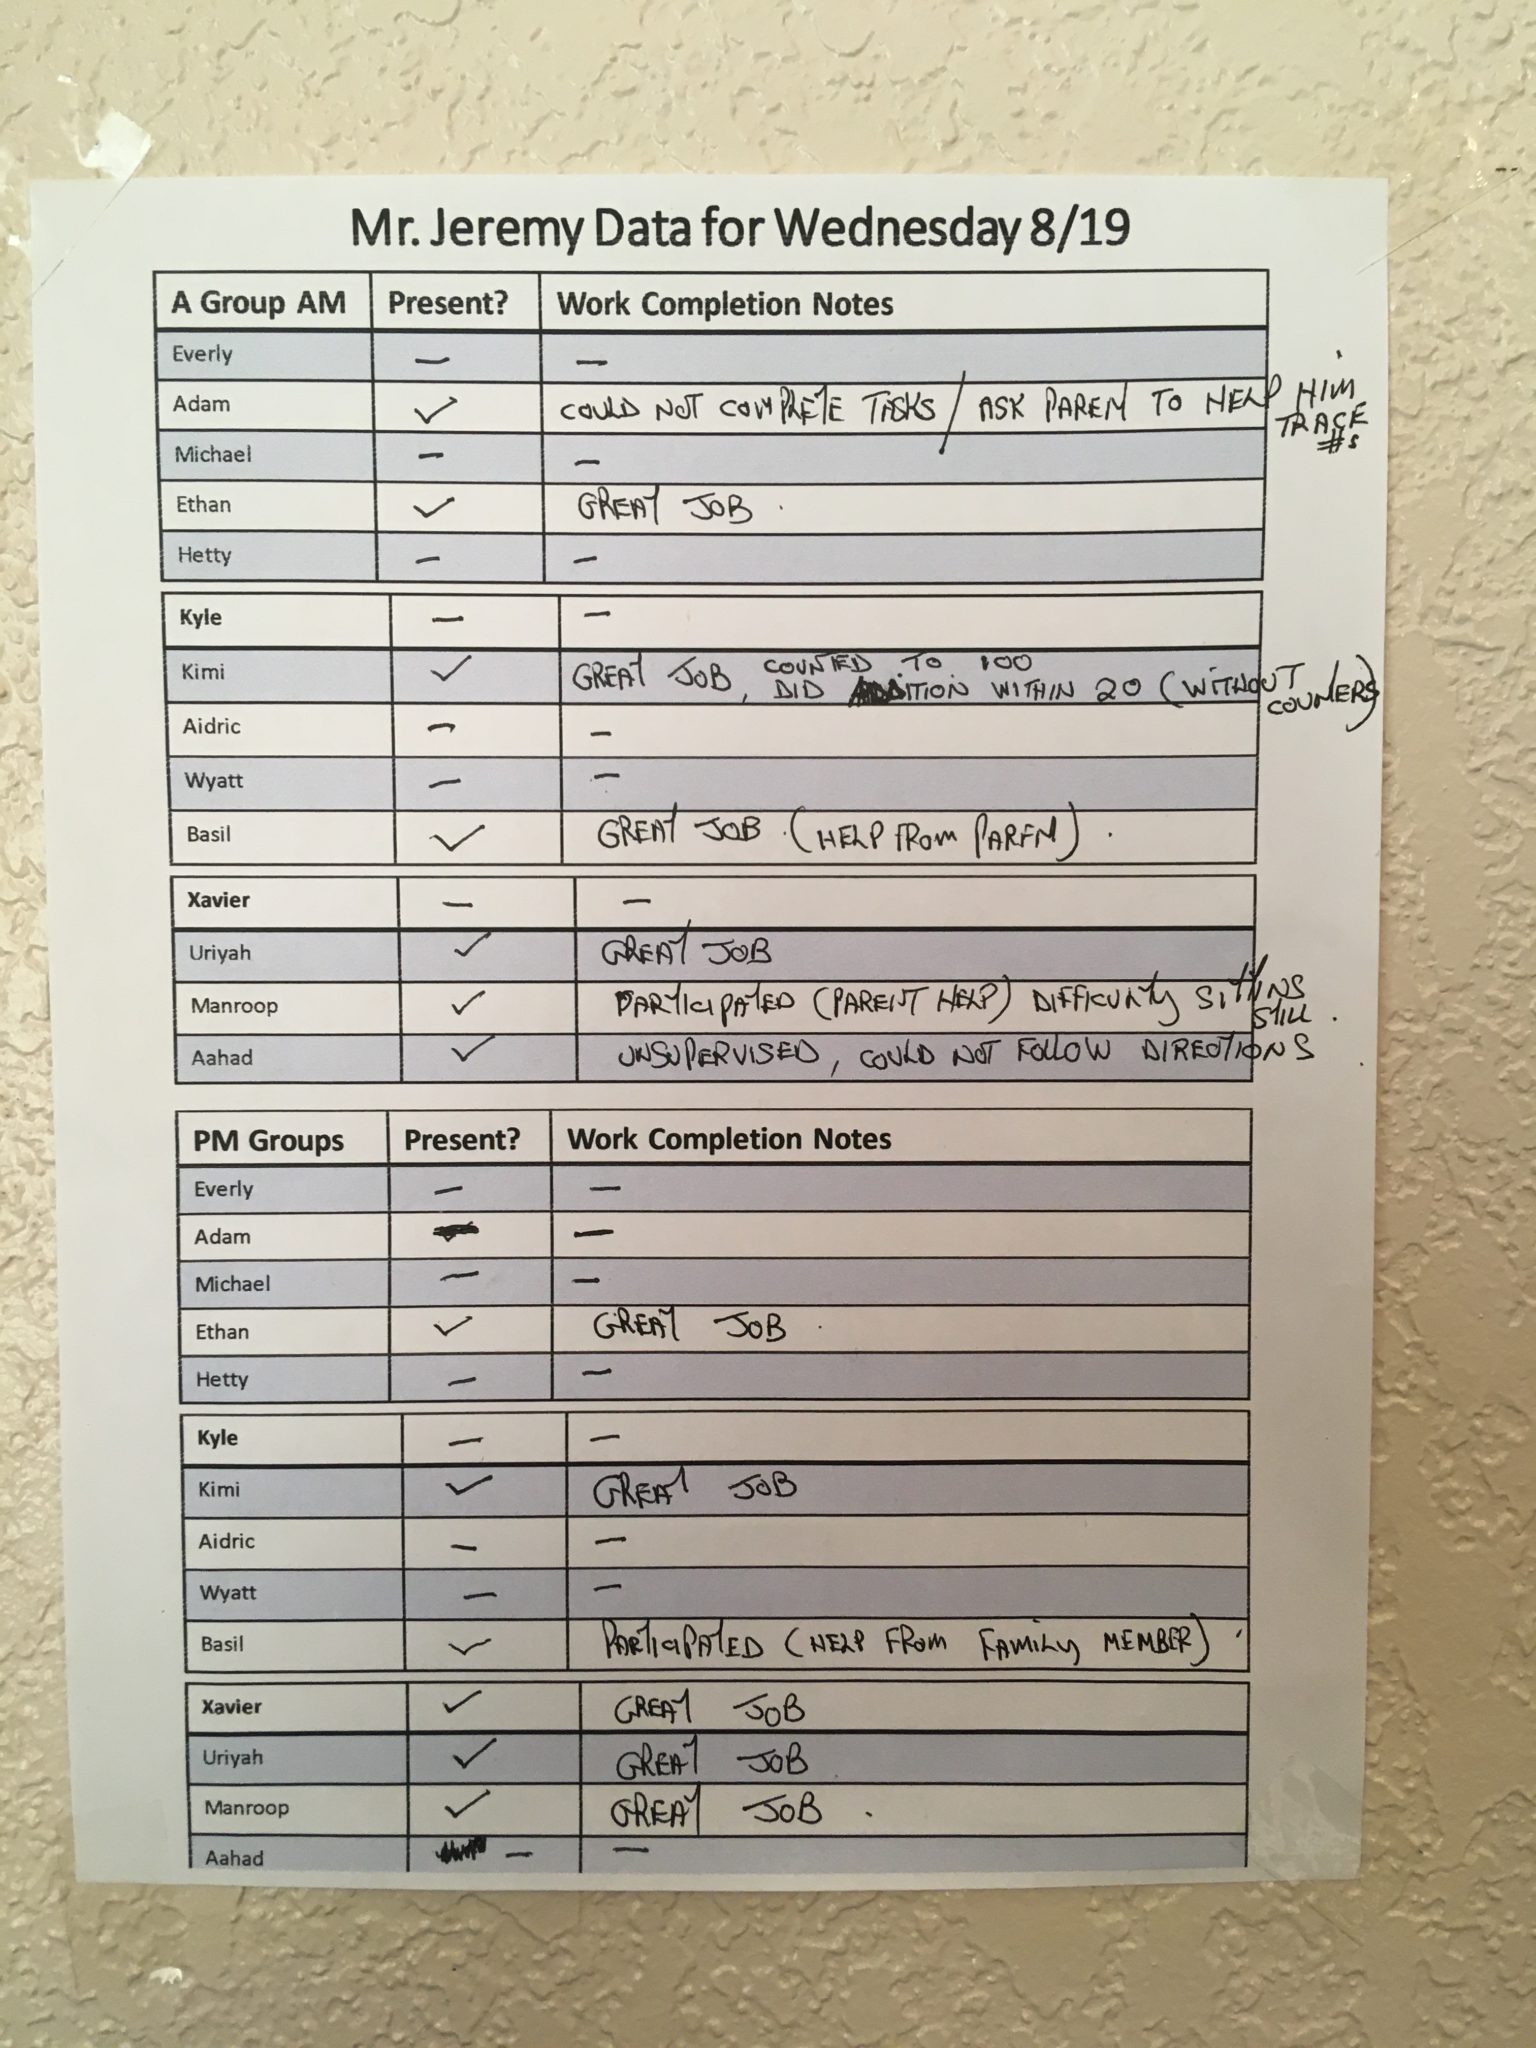 Mr. Jeremy Data for Wednesday 8/19
A Group AM Present? Work Completion Notes
Everly — —
Adam ✓ COULD NOT COMPLETE TASKS / ASK PARENT TO HELP HIM
TRACE
#s
Michael — —
Ethan ✓ GREAT JOB.
Hetty — —
Kyle — —
Kimi ✓ GREAT JOB, COUNTED TO 100
DID ADDITION WITHIN 20 (WITHOUT
COUNTERS)
Aidric — —
Wyatt — —
Basil ✓ GREAT JOB. (HELP FROM PARENT).
Xavier — —
Uriyah ✓ GREAT JOB
Manroop ✓ PARTICIPATED (PARENT HELP) DIFFICULTY SITTING
STILL.
Aahad ✓ UNSUPERVISED, COULD NOT FOLLOW DIRECTIONS
PM Groups Present? Work Completion Notes
Everly — —
Adam — —
Michael — —
Ethan ✓ GREAT JOB.
Hetty — —
Kyle — —
Kimi ✓ GREAT JOB
Aidric — —
Wyatt — —
Basil ✓ PARTICIPATED (HELP FROM FAMILY MEMBER).
Xavier ✓ GREAT JOB
Uriyah ✓ GREAT JOB
Manroop ✓ GREAT JOB.
Aahad — —